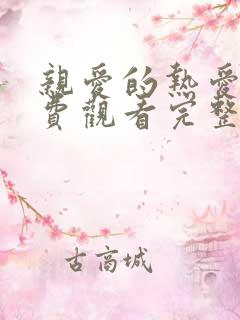 親愛的熱愛
費觀看完整
古高城